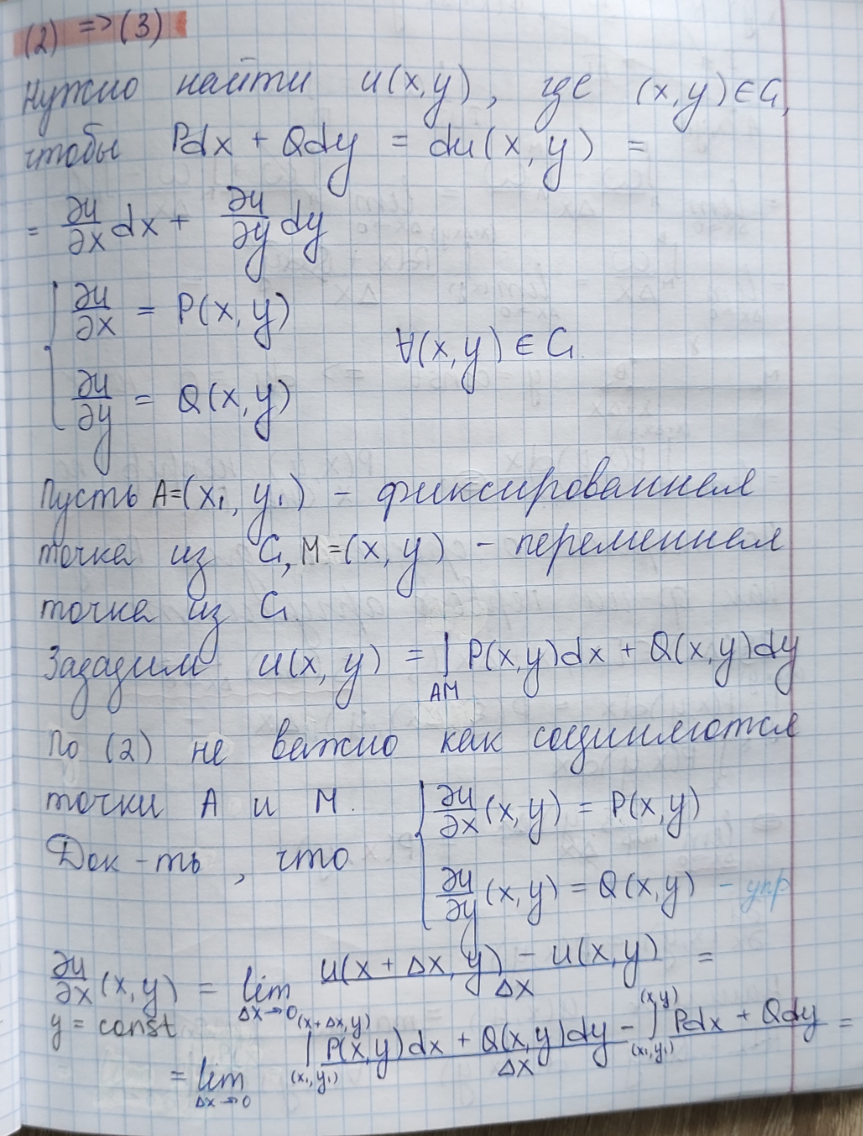 (2) => (3)
Нужно найти u(x,y), где (x,y)∈G,
чтобы Pdx + Qdy = du(x,y) =
= ∂u/∂x dx + ∂u/∂y dy
{ ∂u/∂x = P(x,y)
∀(x,y) ∈ G
∂u/∂y = Q(x,y)
Пусть A=(x₁,y₁) - фиксированная
точка из G, M=(x,y) - переменная
точка из G.
Зададим u(x,y) = ∫_{AM} P(x,y)dx + Q(x,y)dy
По (2) не важно как соединяются
точки A и M.
Док-ть, что { ∂u/∂x (x,y) = P(x,y)
∂u/∂y (x,y) = Q(x,y) - упр
∂u/∂x (x,y) = lim_{Δx→0} (u(x+Δx,y) - u(x,y))/Δx =
y = const
= lim_{Δx→0} (∫_{(x₁,y₁)}^{(x+Δx,y)} P(x,y)dx + Q(x,y)dy - ∫_{(x₁,y₁)}^{(x,y)} Pdx + Qdy)/Δx =